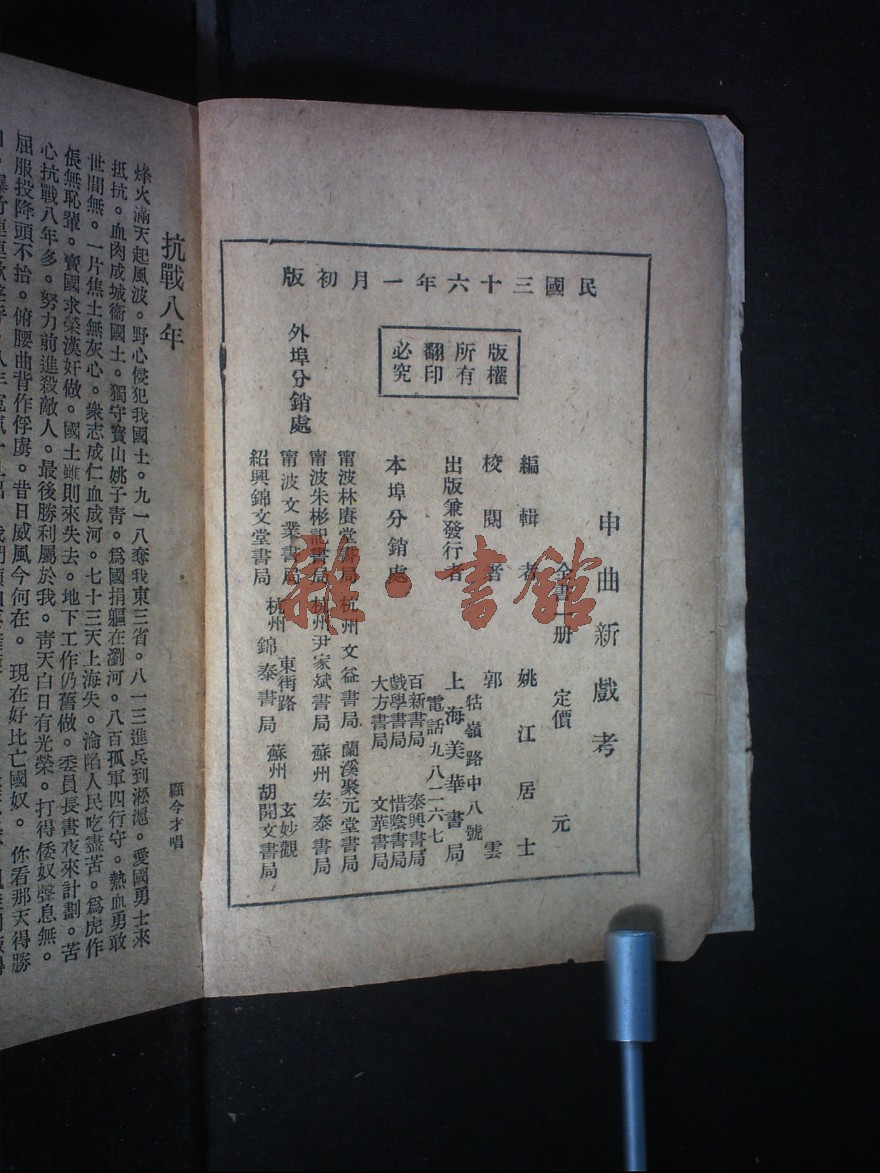 民國三十六年一月初版
版權所有翻印必究
申曲新戲考
全書一册 定價 元
編輯者 姚江居士
校閱者 郭雲
出版兼發行者 上海美華書局
牯嶺路中八號
電話九八二六七
本埠分銷處
百新書局 泰興書局
戲學書局 惜陰書局
大方書局 文華書局
外埠分銷處
甯波林賡堂書局 杭州文益書局 蘭溪聚元堂書局
甯波朱彬記書局 杭州尹家斌書局 蘇州宏泰書局
甯波文業書局 杭州東街路錦泰書局 蘇州玄妙觀胡開文書局
紹興錦文堂書局
雜·書館
抗戰八年
顧今才唱
烽火滿天起風波。野心侵犯我國士。九一八奪我東三省。八一三進兵到淞滬。愛國勇士來
抵抗。血肉成城衞國土。獨守寶山姚子青。爲國捐軀在瀏河。八百孤軍四行守。熱血勇敢
世間無。一片焦土無灰心。衆志成仁血成河。七十三天上海失。淪陷人民吃盡苦。爲虎作
倀無恥輩。賣國求榮漢奸做。國土雖則來失去。地下工作仍舊做。委員長晝夜來計劃。苦
心抗戰八年多。努力前進殺敵人。最後勝利屬於我。青天白日有光榮。打得倭奴聲息無。
屈服投降頭不抬。俯腰曲背作俘虜。昔日威風今何在。現在好比亡國奴。你看那天得勝